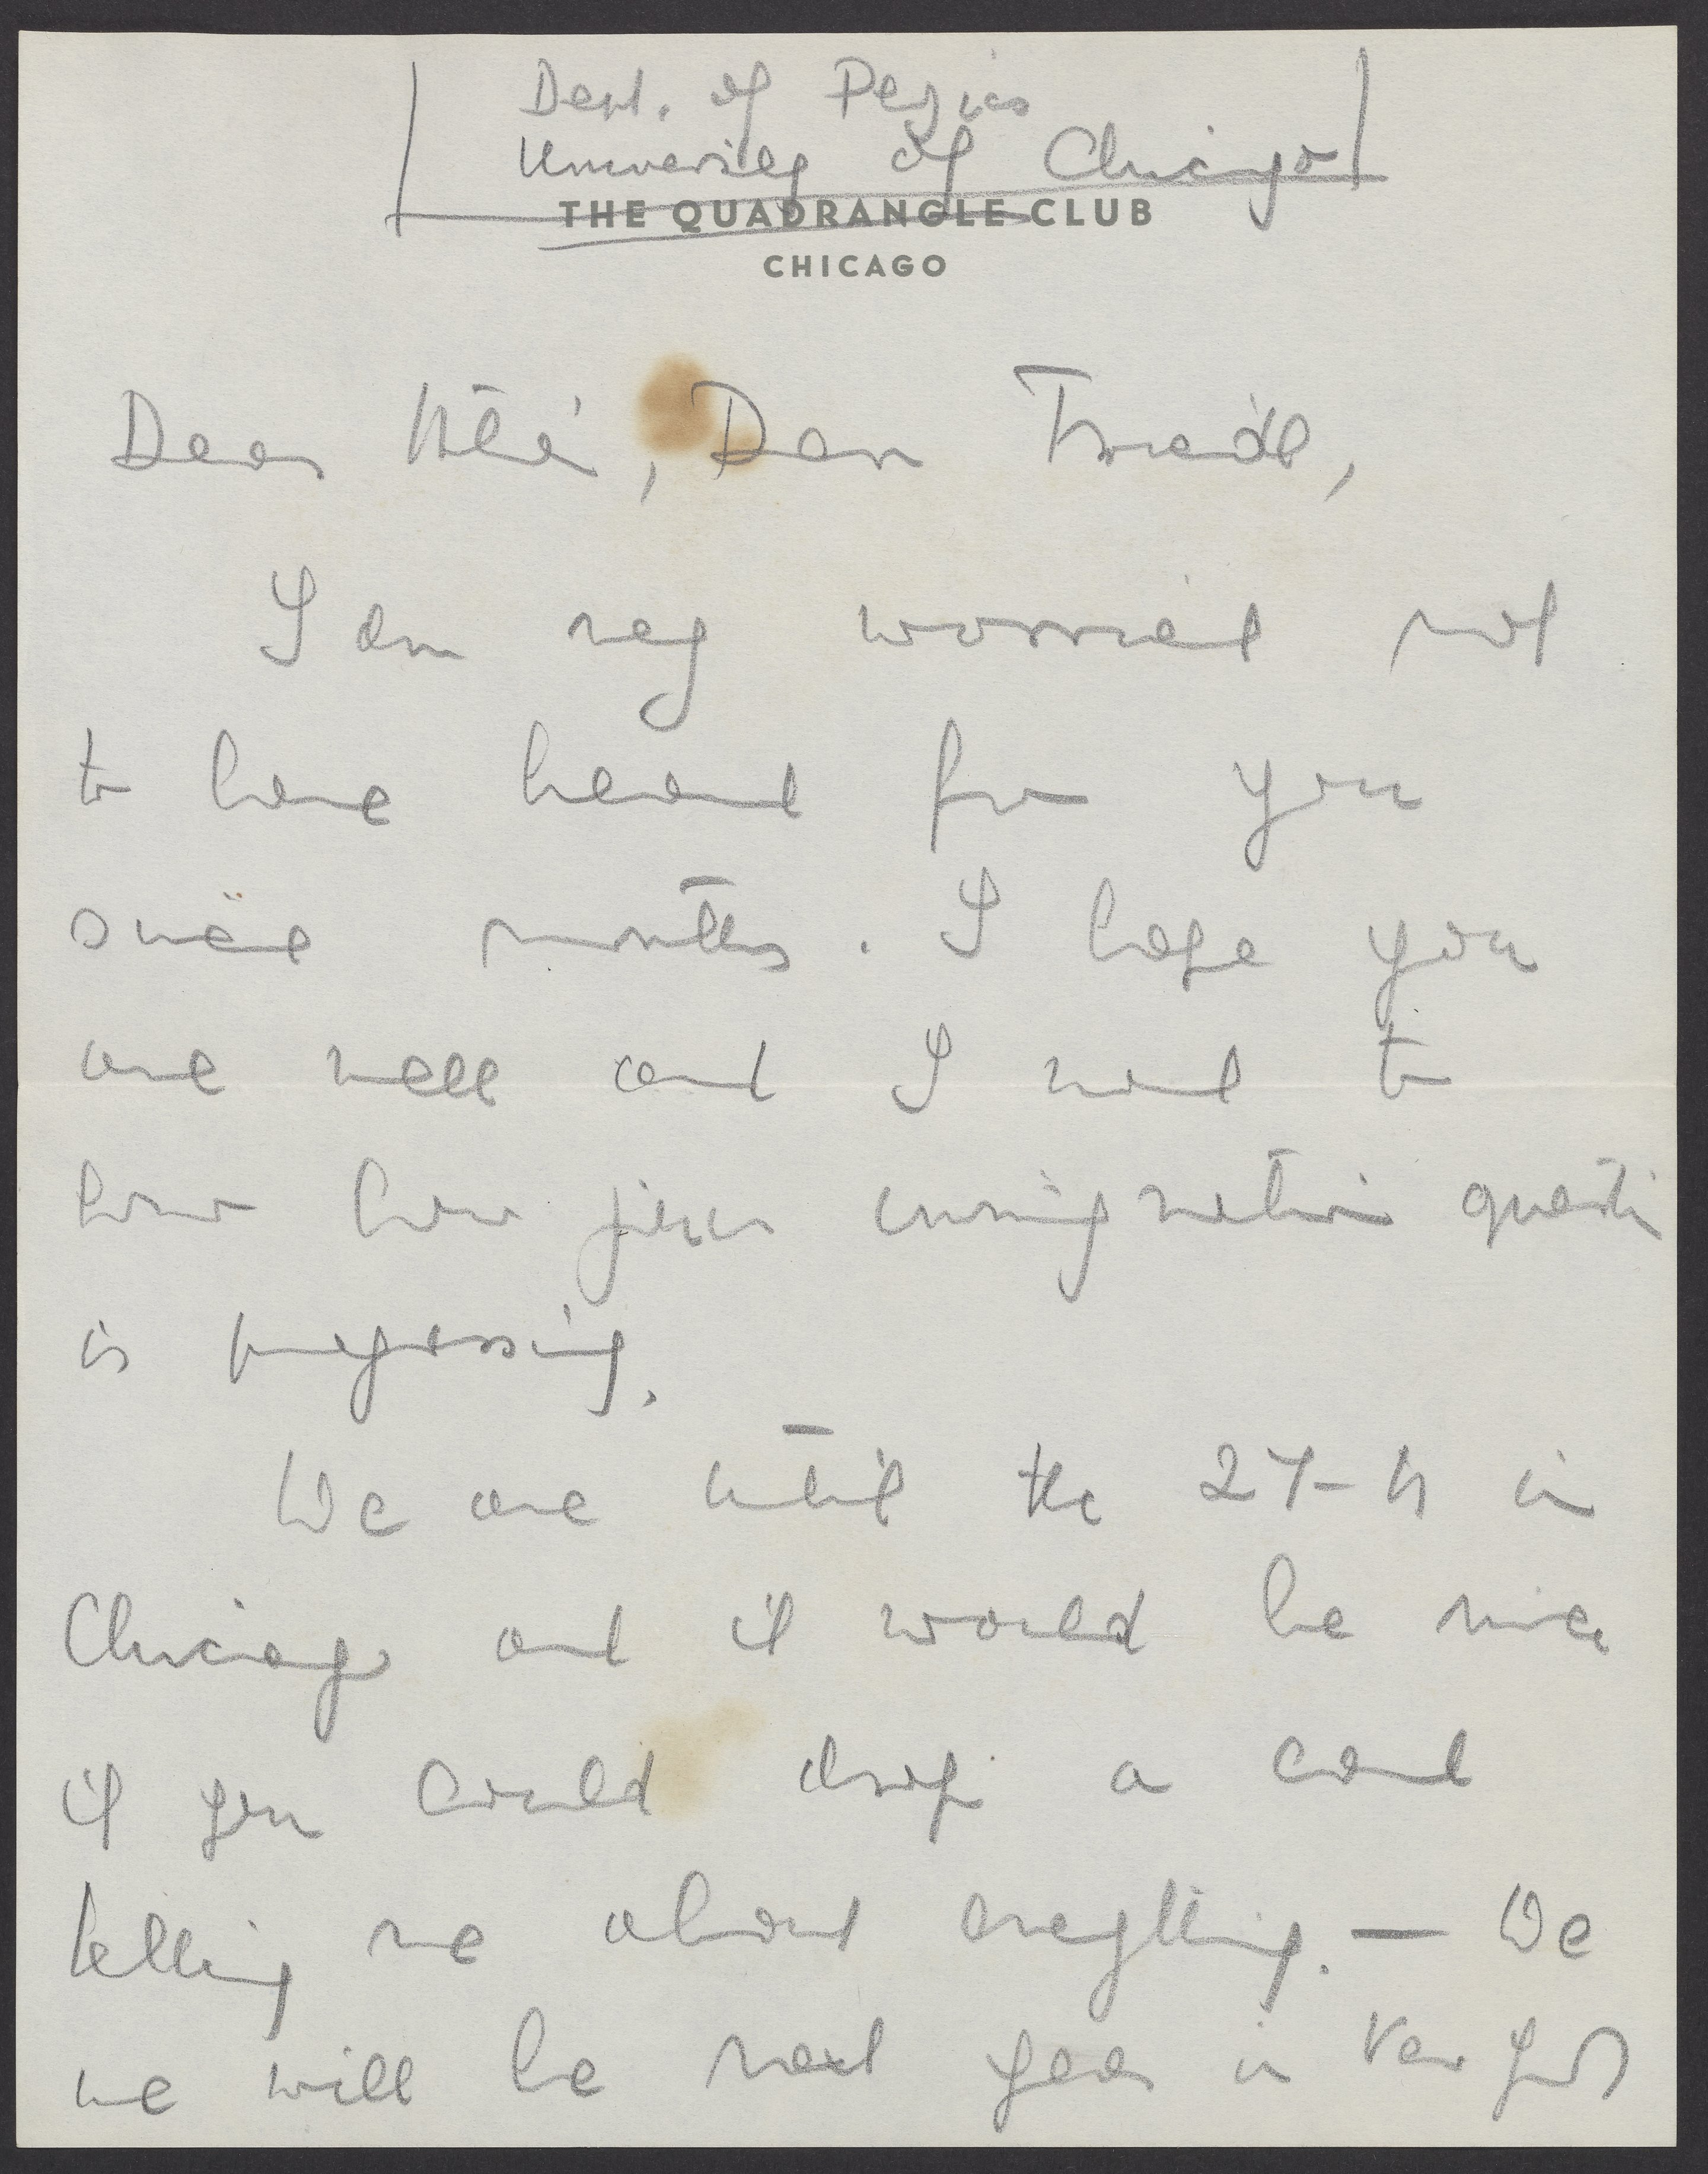 Dept. of Pegics
University of Chicago
THE QUADRANGLE CLUB
CHICAGO
Dear Dear Friedl,
I am very worried not
to have heard from you
since months. I hope you
are well and I want to
know how your immigration questi
is progressing.
We are until the 27-th in
Chicago and it would be nice
if you could drop a card
telling me about everything. — We
we will be next year in New York